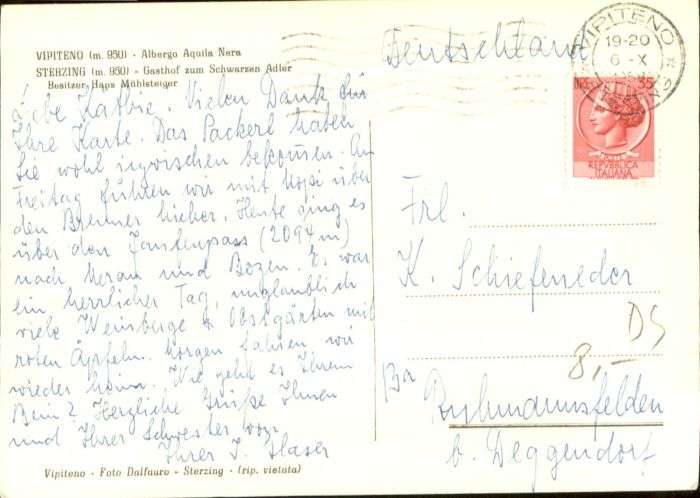 VIPITENO (m. 950) - Albergo Aquila Nera
STERZING (m. 950) - Gasthof zum Schwarzen Adler
Besitzer Hans Mühlsteiger
Liebe Kathre. Vielen Dank für
Ihre Karte. Das Packerl haben
Sie wohl inzwischen bekommen. Am
Freitag fuhren wir mit Kopi über
den Brenner hieher. Heute ging es
über den Jaufenpass (2094 m)
nach Meran und Bozen. Es war
ein herrlicher Tag, unglaublich
viele Weinberge & Obstgärten mit
roten Äpfeln. Morgen fahren wir
wieder heim. Wie geht es Ihrem
Bein? Herzliche Grüße Ihnen
und Ihrer Schwester von
Ihrer J. Glaser
Vipiteno - Foto Dalfauro - Sterzing - (rip. vietata)
Deutschland
VIPITENO
19-20
6 - X
35
REPVBBLICA
ITALIANA
Frl.
K. Schiefeneder
DS
8,-
Ruhmannsfelden
b. Deggendorf